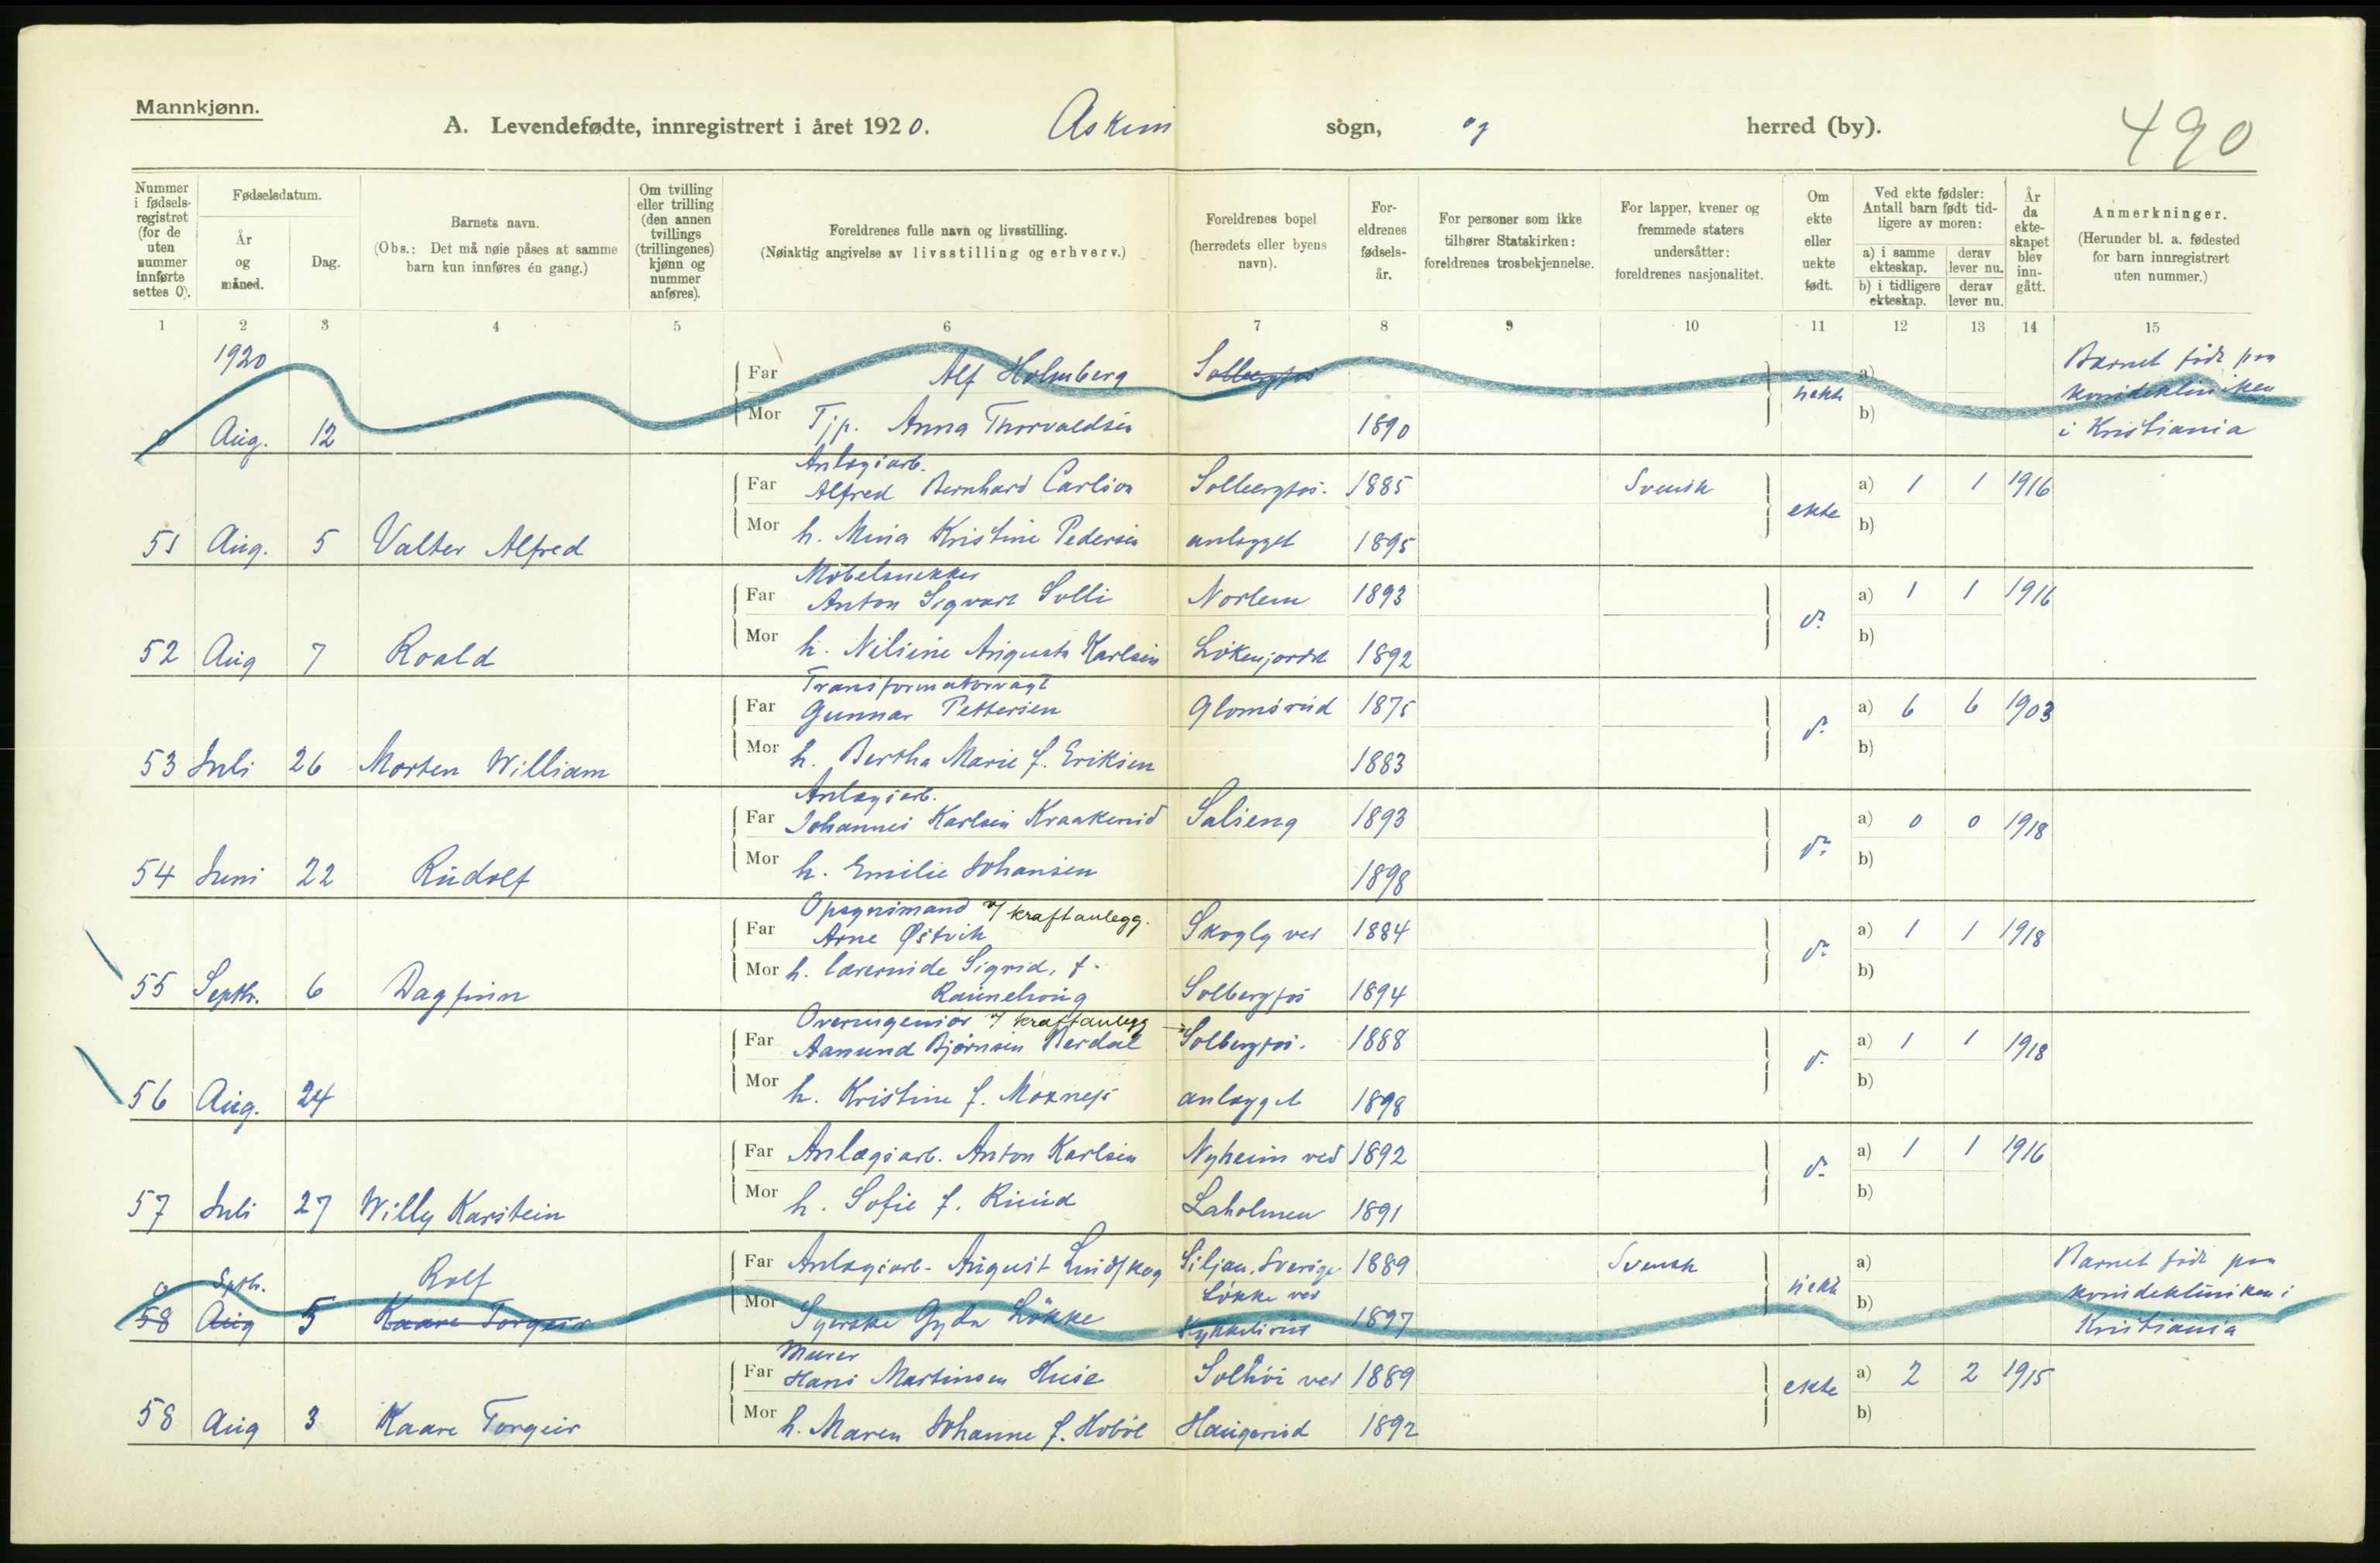 Mannkjønn.
A. Levendefødte, innregistrert i året 1920. Askim sogn, og herred (by). 490
Nummer i fødsels-registret (for de uten nummer innførte settes 0).
Fødselsdatum.
År og måned.
Dag.
Barnets navn.
(Obs.: Det må nøie påses at samme barn kun innføres én gang.)
Om tvilling eller trilling (den annen tvillings (trillingenes) kjønn og nummer anføres).
Foreldrenes fulle navn og livsstilling.
(Nøiaktig angivelse av livsstilling og erhverv.)
Foreldrenes bopel (herredets eller byens navn).
For-eldrenes fødsels-år.
For personer som ikke tilhører Statskirken: foreldrenes trosbekjennelse.
For lapper, kvener og fremmede staters undersåtter: foreldrenes nasjonalitet.
Om ekte eller uekte født.
Ved ekte fødsler: Antall barn født tid-ligere av moren:
a) i samme ekteskap. derav lever nu.
b) i tidligere ekteskap. derav lever nu.
År da ekte-skapet blev inn-gått.
Anmerkninger.
(Herunder bl. a. fødested for barn innregistrert uten nummer.)
1 2 3 4 5 6 7 8 9 10 11 12 13 14 15
1920
Far Alf Holmberg Solbergfos a) Barnet født paa
uekte kvindekliniken
0 Aug. 12 Mor Tjp. Anna Thorvaldsen 1890 b) i Kristiania
Anlægsarb.
Far Alfred Bernhard Carlson Solbergfos- 1885 Svensk ekte a) 1 1 1916
51 Aug. 5 Valter Alfred Mor h. Mina Kristine Pedersen anlægget 1895 b)
Möbelsnekker
Far Anton Sigvart Solli Norlem 1893 do a) 1 1 1916
52 Aug 7 Roald Mor h. Nilsine Augusta Karlsen Lökenjordet 1892 b)
Transformatorvagt
Far Gunnar Pettersen Glomsrud 1875 do a) 6 6 1903
53 Juli 26 Morten William Mor h. Bertha Marie f. Eriksen 1883 b)
Anlægsarb.
Far Johannes Karlsen Kraakerud Salseng 1893 do a) 0 0 1918
54 Juni 22 Rudolf Mor h. Emilie Johansen 1898 b)
Opsynsmand v/ kraftanlegg.
Far Arne Østvik Skogly ved 1884 do a) 1 1 1918
55 Septbr. 6 Dagfinn Mor h. lærerinde Sigrid, f. Solbergfos 1894 b)
Overingeniör v/ kraftanlegg
Far Aamund Bjørnsen Berdal Solbergfos- 1888 do a) 1 1 1918
56 Aug. 24 Mor h. Kristine f. Moxness anlægget 1898 b)
Far Anlægsarb. Anton Karlsen Nyheim ved 1892 do a) 1 1 1916
57 Juli 27 Willy Karstein Mor h. Sofie f. Ruud Laholmen 1891 b)
Far Anlægsarb. August Lindskog Siljan, Sverige 1889 Svensk a) Barnet født paa
0 Septbr. Rolf Løkke ved uekte kvindekliniken i
58 Aug 5 Kaare Torgeir Mor Syerske Gyda Løkke Kykkelsrud 1897 b) Kristiania
Murer
Far Hans Martinsen Huse Solhöi ved 1889 ekte a) 2 2 1915
58 Aug 3 Kaare Torgeir Mor h. Maren Johanne f. Hobøl Haugerud 1892 b)